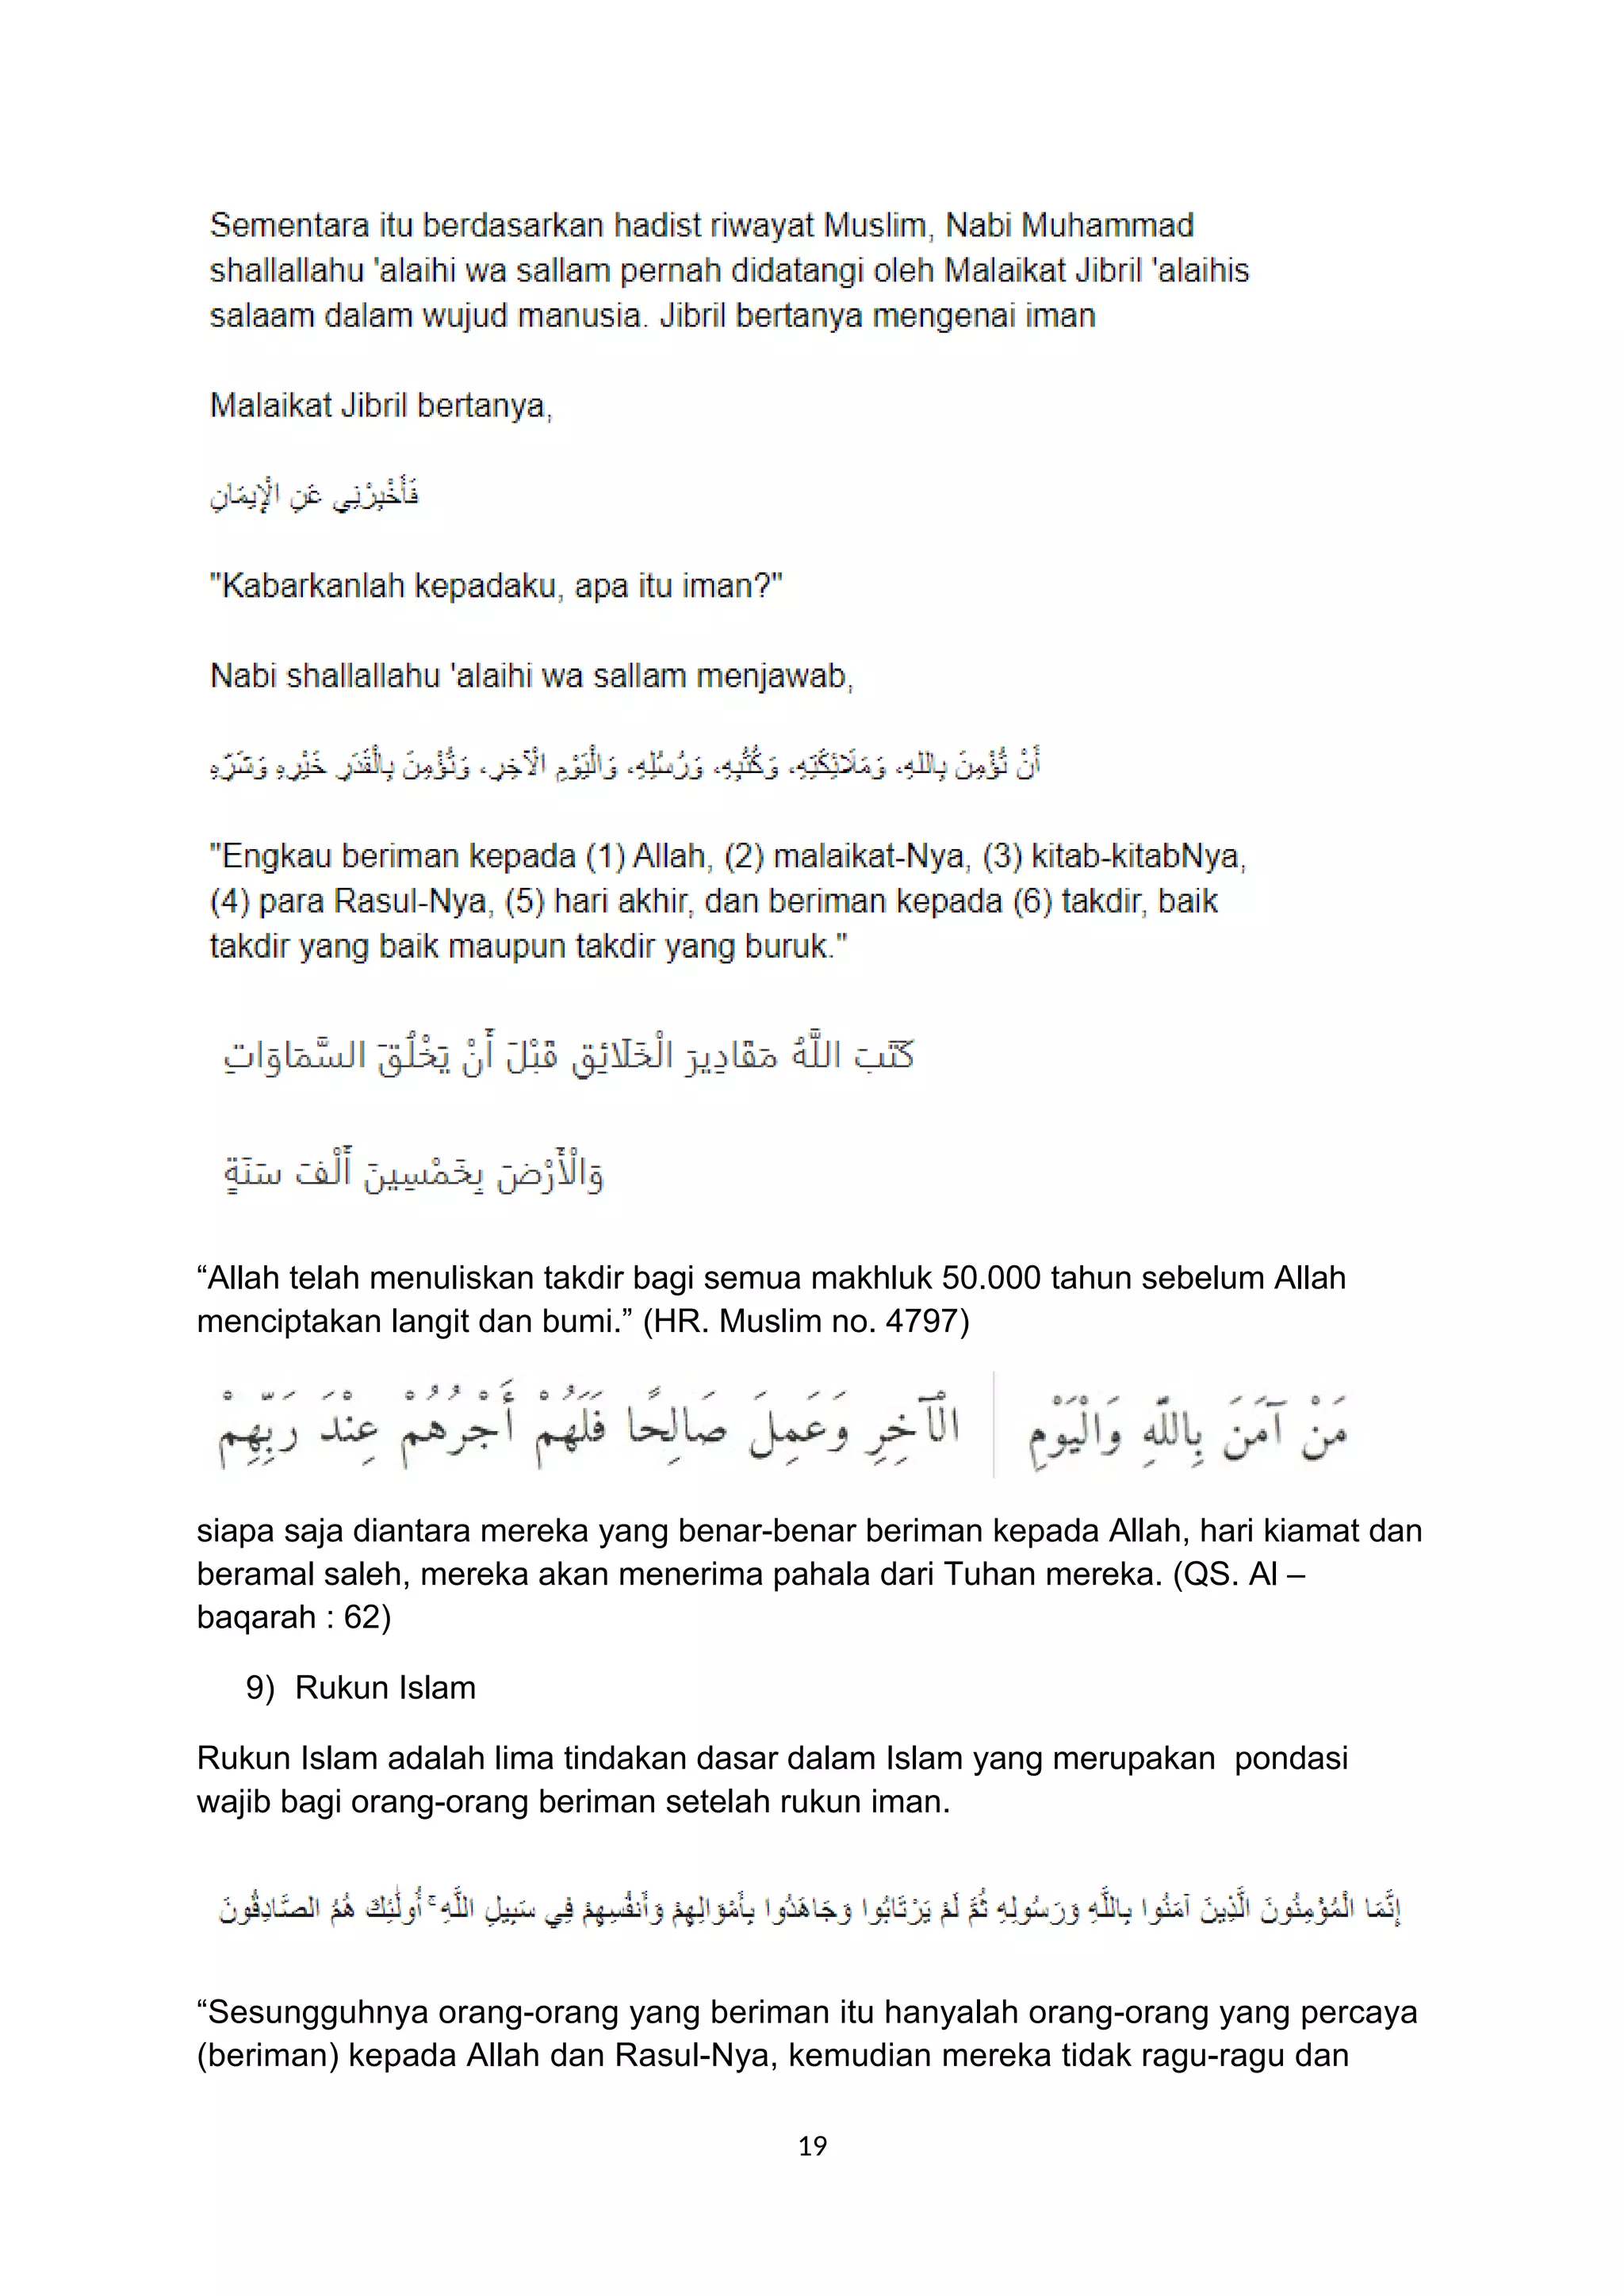 Sementara itu berdasarkan hadist riwayat Muslim, Nabi Muhammad
shallallahu 'alaihi wa sallam pernah didatangi oleh Malaikat Jibril 'alaihis
salaam dalam wujud manusia. Jibril bertanya mengenai iman
Malaikat Jibril bertanya,
فَأَخْبِرْنِي عَنِ الْإِيمَانِ
"Kabarkanlah kepadaku, apa itu iman?"
Nabi shallallahu 'alaihi wa sallam menjawab,
أَنْ تُؤْمِنَ بِاللهِ، وَمَلَائِكَتِهِ، وَكُتُبِهِ، وَرُسُلِهِ، وَالْيَوْمِ الْآخِرِ، وَتُؤْمِنَ بِالْقَدَرِ خَيْرِهِ وَشَرِّهِ
"Engkau beriman kepada (1) Allah, (2) malaikat-Nya, (3) kitab-kitabNya,
(4) para Rasul-Nya, (5) hari akhir, dan beriman kepada (6) takdir, baik
takdir yang baik maupun takdir yang buruk."
كَتَبَ اللَّهُ مَقَادِيرَ الْخَلَائِقِ قَبْلَ أَنْ يَخْلُقَ السَّمَاوَاتِ
وَالْأَرْضَ بِخَمْسِينَ أَلْفَ سَنَةٍ
“Allah telah menuliskan takdir bagi semua makhluk 50.000 tahun sebelum Allah
menciptakan langit dan bumi.” (HR. Muslim no. 4797)
مَنْ آمَنَ بِاللَّهِ وَالْيَوْمِ الْآخِرِ وَعَمِلَ صَالِحًا فَلَهُمْ أَجْرُهُمْ عِنْدَ رَبِّهِمْ
siapa saja diantara mereka yang benar-benar beriman kepada Allah, hari kiamat dan
beramal saleh, mereka akan menerima pahala dari Tuhan mereka. (QS. Al –
baqarah : 62)
9) Rukun Islam
Rukun Islam adalah lima tindakan dasar dalam Islam yang merupakan  pondasi
wajib bagi orang-orang beriman setelah rukun iman.
إِنَّمَا الْمُؤْمِنُونَ الَّذِينَ آمَنُوا بِاللَّهِ وَرَسُولِهِ ثُمَّ لَمْ يَرْتَابُوا وَجَاهَدُوا بِأَمْوَالِهِمْ وَأَنفُسِهِمْ فِي سَبِيلِ اللَّهِ ۚ أُولَٰئِكَ هُمُ الصَّادِقُونَ
“Sesungguhnya orang-orang yang beriman itu hanyalah orang-orang yang percaya
(beriman) kepada Allah dan Rasul-Nya, kemudian mereka tidak ragu-ragu dan
19